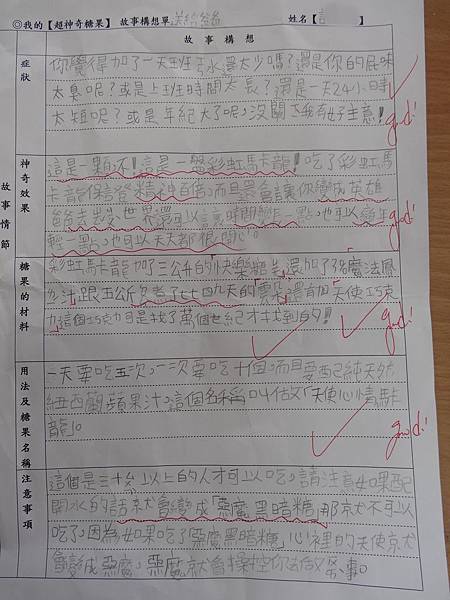 ◎我的【超神奇糖果】 故事構想單 送給爸爸 姓名【言
故事構想
故事情節
症狀
你覺得加了一天班薪水還太少嗎?還是你的屁味
太臭呢?或是上班時間太長?還是一天24小時
太短呢?或是年紀大了呢,沒關係我有好主意!
good!
神奇效果
這是一顆不!這是一盤彩虹馬卡龍!吃了彩虹馬
卡龍保證精神百倍,而且還會讓你變成英雄
爸爸去 世界還可以讓時間變 一點,也可以變年
輕一點,也可以天天都很開心。
good!
糖果的材料
彩虹馬卡龍加了三公升的快樂 還加了3 魔法鳳
汁跟五公斤煮了七七四九天的雲朵還有加天使巧克
力這個巧克力可是找了萬個世紀才找到的!
good!
用法及糖果名稱
一天要吃五次,一次要吃十個,而且要配純天然
紐西蘭蘋果汁。這個名稱叫做「天使心情馬卡
龍」。
good!
注意事項
這個是三十 以上的人才可以吃,請注意如果配
開水的話就會變成「惡魔黑暗糖」那就不可以
吃了。因為如果吃了惡魔黑暗糖,心裡的天使就
會變成惡魔,惡魔就會操控你去做 事。